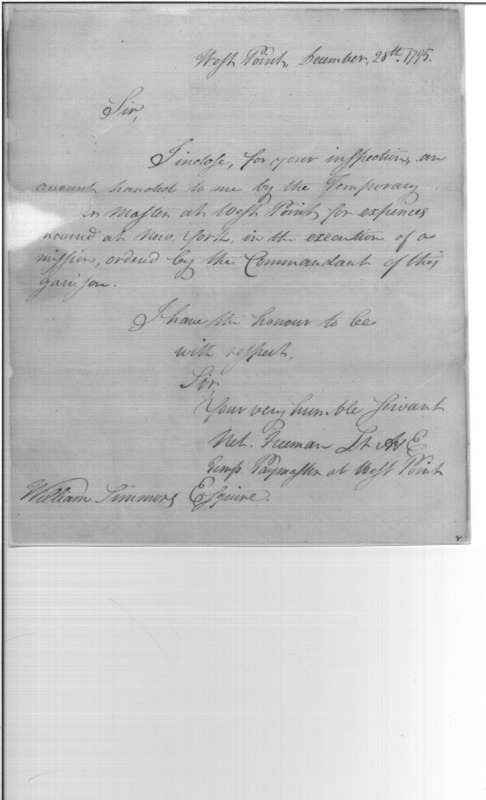 West Point, December, 28th. 1795.
Sir,
I inclose, for your inspection, an
account handed to me by the Temporary
Master at West Point, for expences
incurred at New York, in the execution of a
mission, ordered by the Commandant of this
garison.
I have the honour to be
with respect,
Sir,
Your very humble Servant
Net. Freeman Lt A&E
Temp. Paymaster at West Point
William Simmons Esquire.